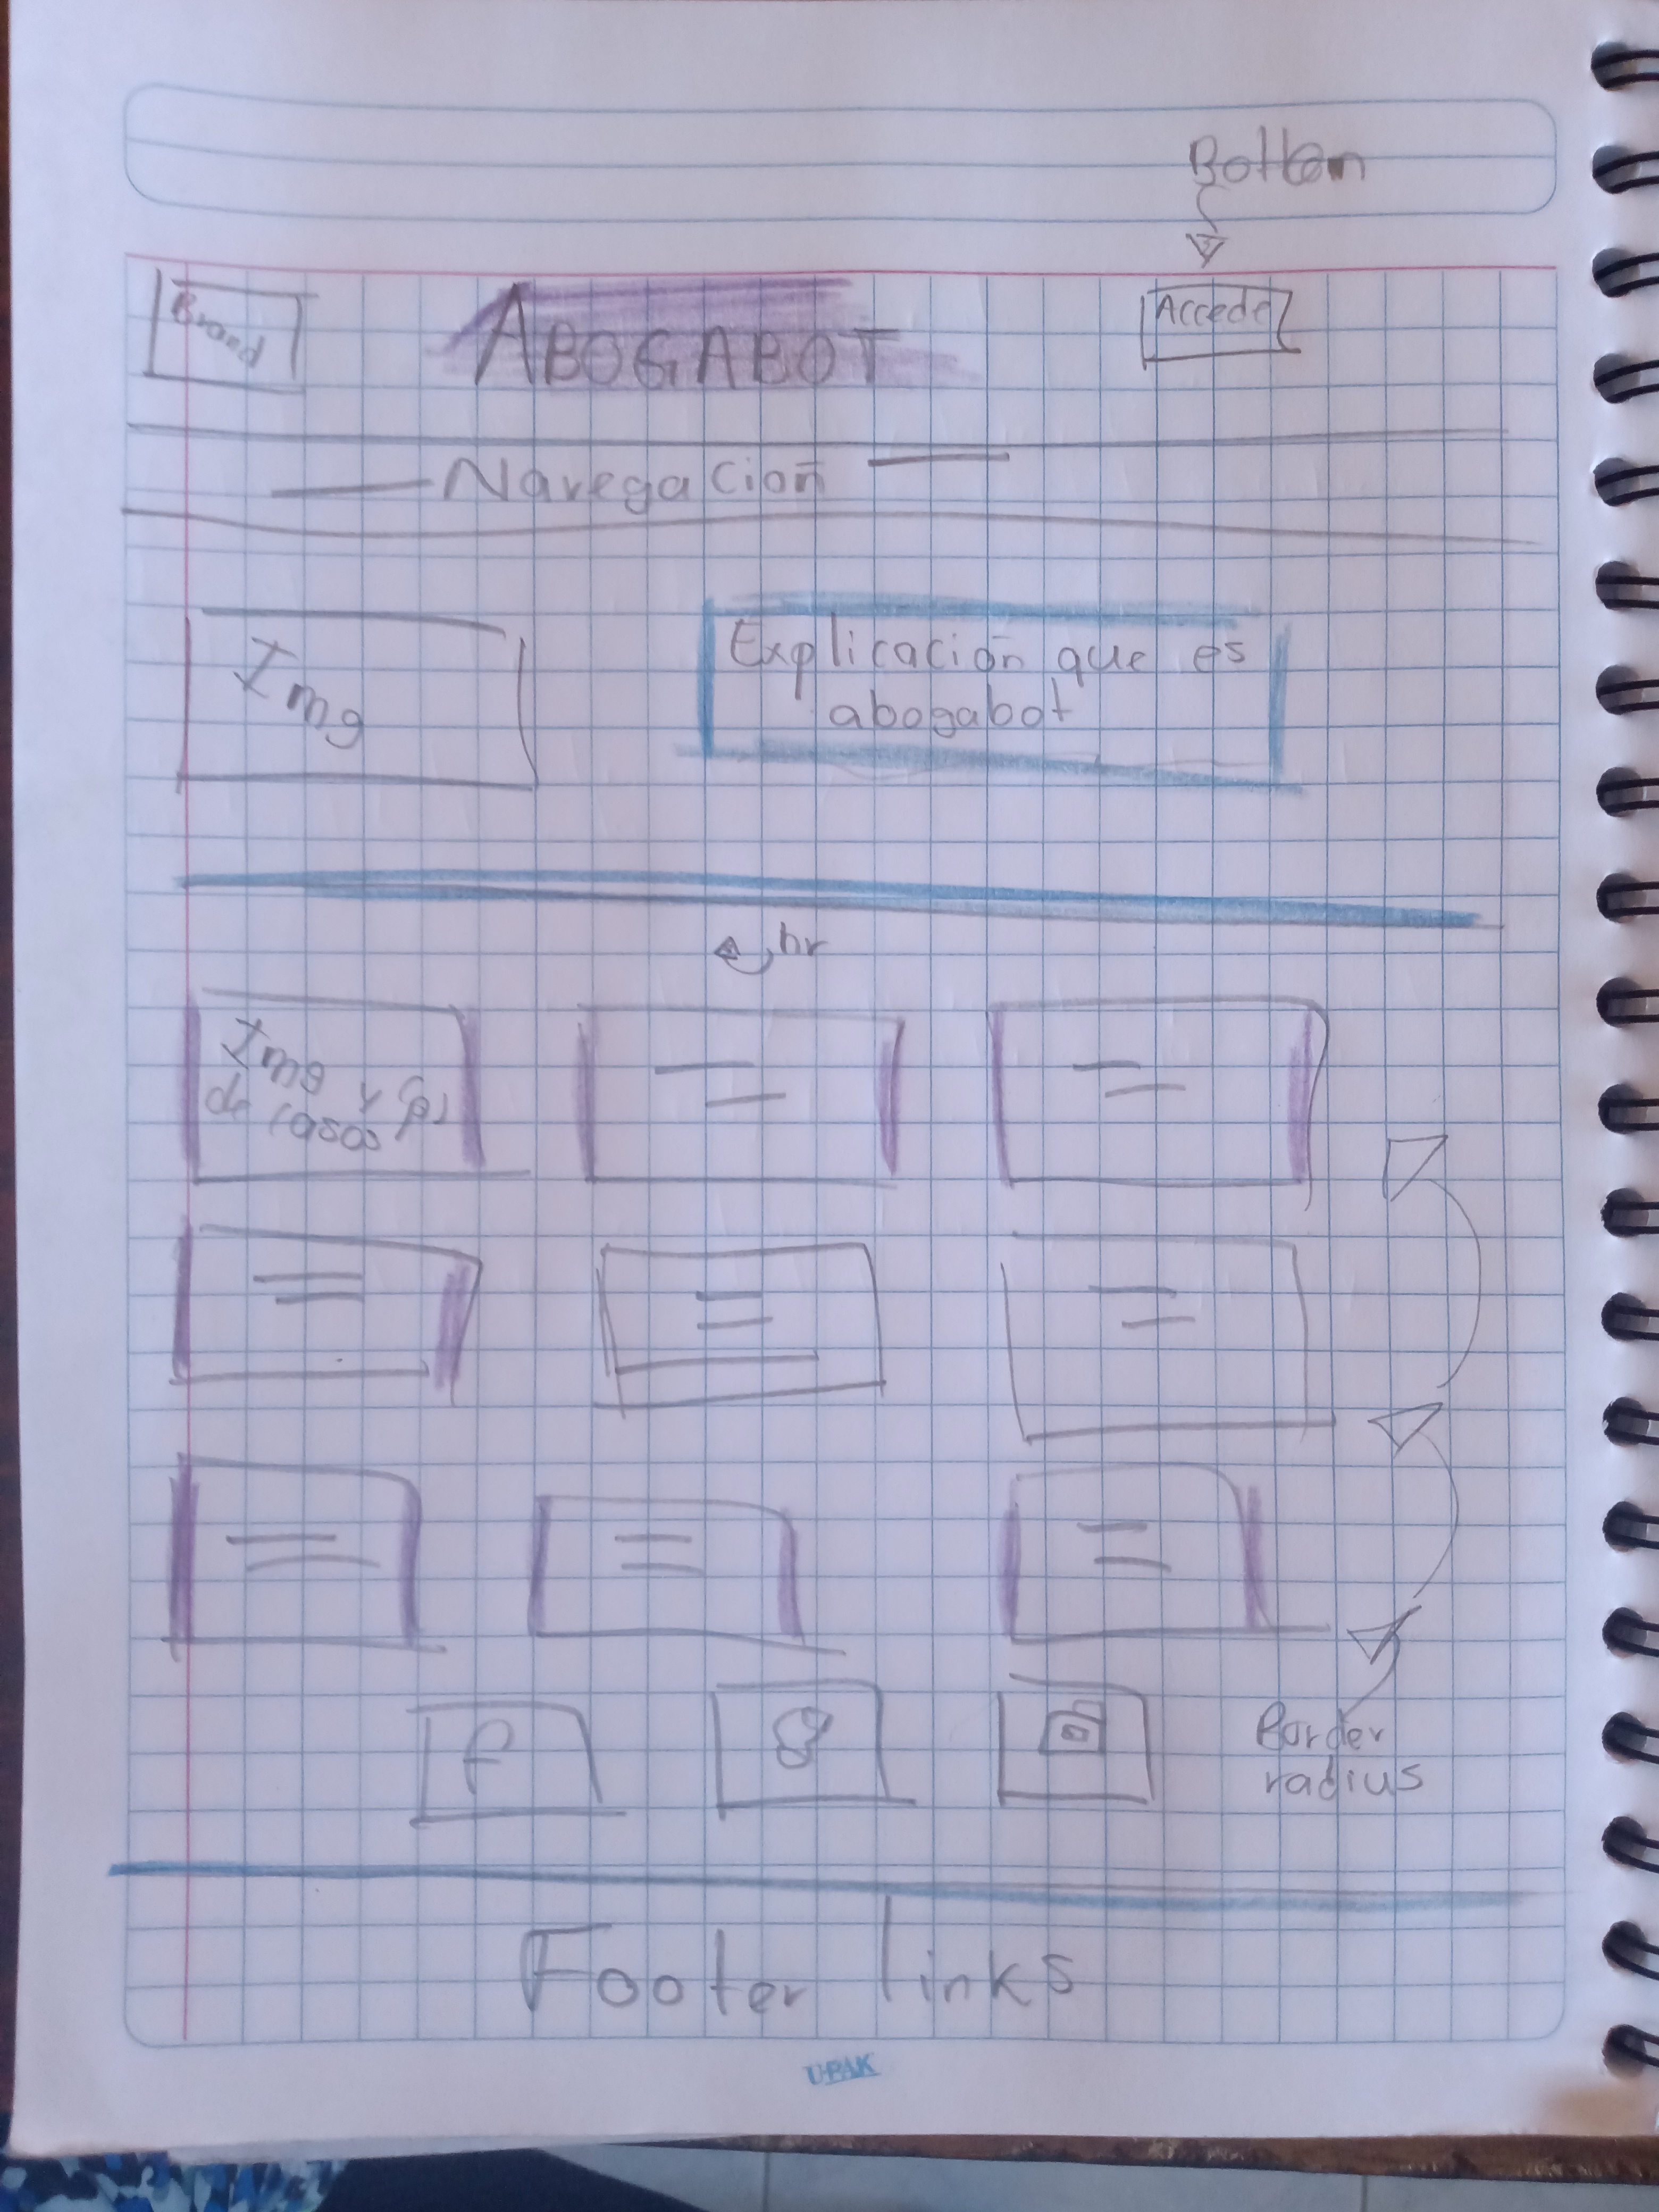 Botton
Brand
ABOGABOT
Accede
Navegación
Img
Explicación que es
abogabot
hr
Img y
de casos
Border
radius
Footer links
UPAK